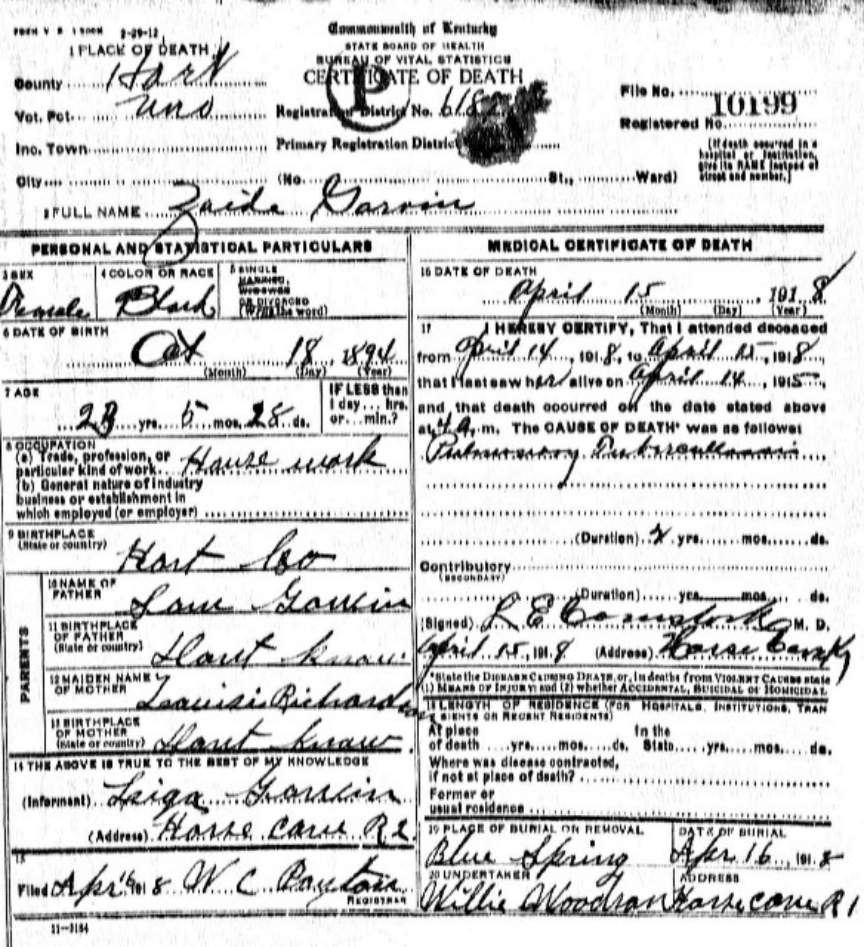 FORM V. S. 2-29-12
Commonwealth of Kentucky
STATE BOARD OF HEALTH
BUREAU OF VITAL STATISTICS
CERTIFICATE OF DEATH
1 PLACE OF DEATH
County Hart
Vot. Pct. Uno
Inc. Town
City
P
Registration District No. 6182
Primary Registration District
(No. St., Ward)
File No. 10199
Registered No.
[If death occurred in a hospital or institution, give its NAME instead of street and number.]
2 FULL NAME Zaida Garvin
PERSONAL AND STATISTICAL PARTICULARS
3 SEX
Female
4 COLOR OR RACE
Black
5 SINGLE
MARRIED,
WIDOWED
OR DIVORCED
(Write the word)
6 DATE OF BIRTH
Oct 18 1894
(Month) (Day) (Year)
7 AGE
23 yrs. 5 mos. 28 ds.
IF LESS than
1 day... hrs.
or... min.?
8 OCCUPATION
(a) Trade, profession, or
particular kind of work House work
(b) General nature of industry
business or establishment in
which employed (or employer)
9 BIRTHPLACE
(State or country)
Hart Co
PARENTS
10 NAME OF
FATHER
Garvin
11 BIRTHPLACE
OF FATHER
(State or country)
Dont know
12 MAIDEN NAME
OF MOTHER
13 BIRTHPLACE
OF MOTHER
(State or country)
Dont know
14 THE ABOVE IS TRUE TO THE BEST OF MY KNOWLEDGE
(Informant) Garvin
(Address) Horse Cave R2
15
Filed Apr 16 1918 W C Payton
REGISTRAR
11-3184
MEDICAL CERTIFICATE OF DEATH
16 DATE OF DEATH
April 15, 1918
(Month) (Day) (Year)
17 I HEREBY CERTIFY, That I attended deceased
from April 14, 1918, to April 15, 1918
that I last saw her alive on April 14, 1915
and that death occurred on the date stated above
at 4 a. m. The CAUSE OF DEATH* was as follows:
Pulmonary Tuberculosis
(Duration) 2 yrs. mos. ds.
Contributory
(SECONDARY)
(Duration) yrs. mos. ds.
(Signed) L E Comstock M. D.
April 15, 1918 (Address) Horse Cave Ky
*State the DISEASE CAUSING DEATH, or, in deaths from VIOLENT CAUSES state
(1) MEANS OF INJURY; and (2) whether ACCIDENTAL, SUICIDAL or HOMICIDAL
18 LENGTH OF RESIDENCE (FOR HOSPITALS, INSTITUTIONS, TRAN
SIENTS OR RECENT RESIDENTS)
At place In the
of death yrs. mos. ds. State yrs. mos. ds.
Where was disease contracted,
if not at place of death?
Former or
usual residence
19 PLACE OF BURIAL OR REMOVAL
Blue Spring
DATE OF BURIAL
Apr. 16, 1918
20 UNDERTAKER
Willie Woodson
ADDRESS
Horse cave R1